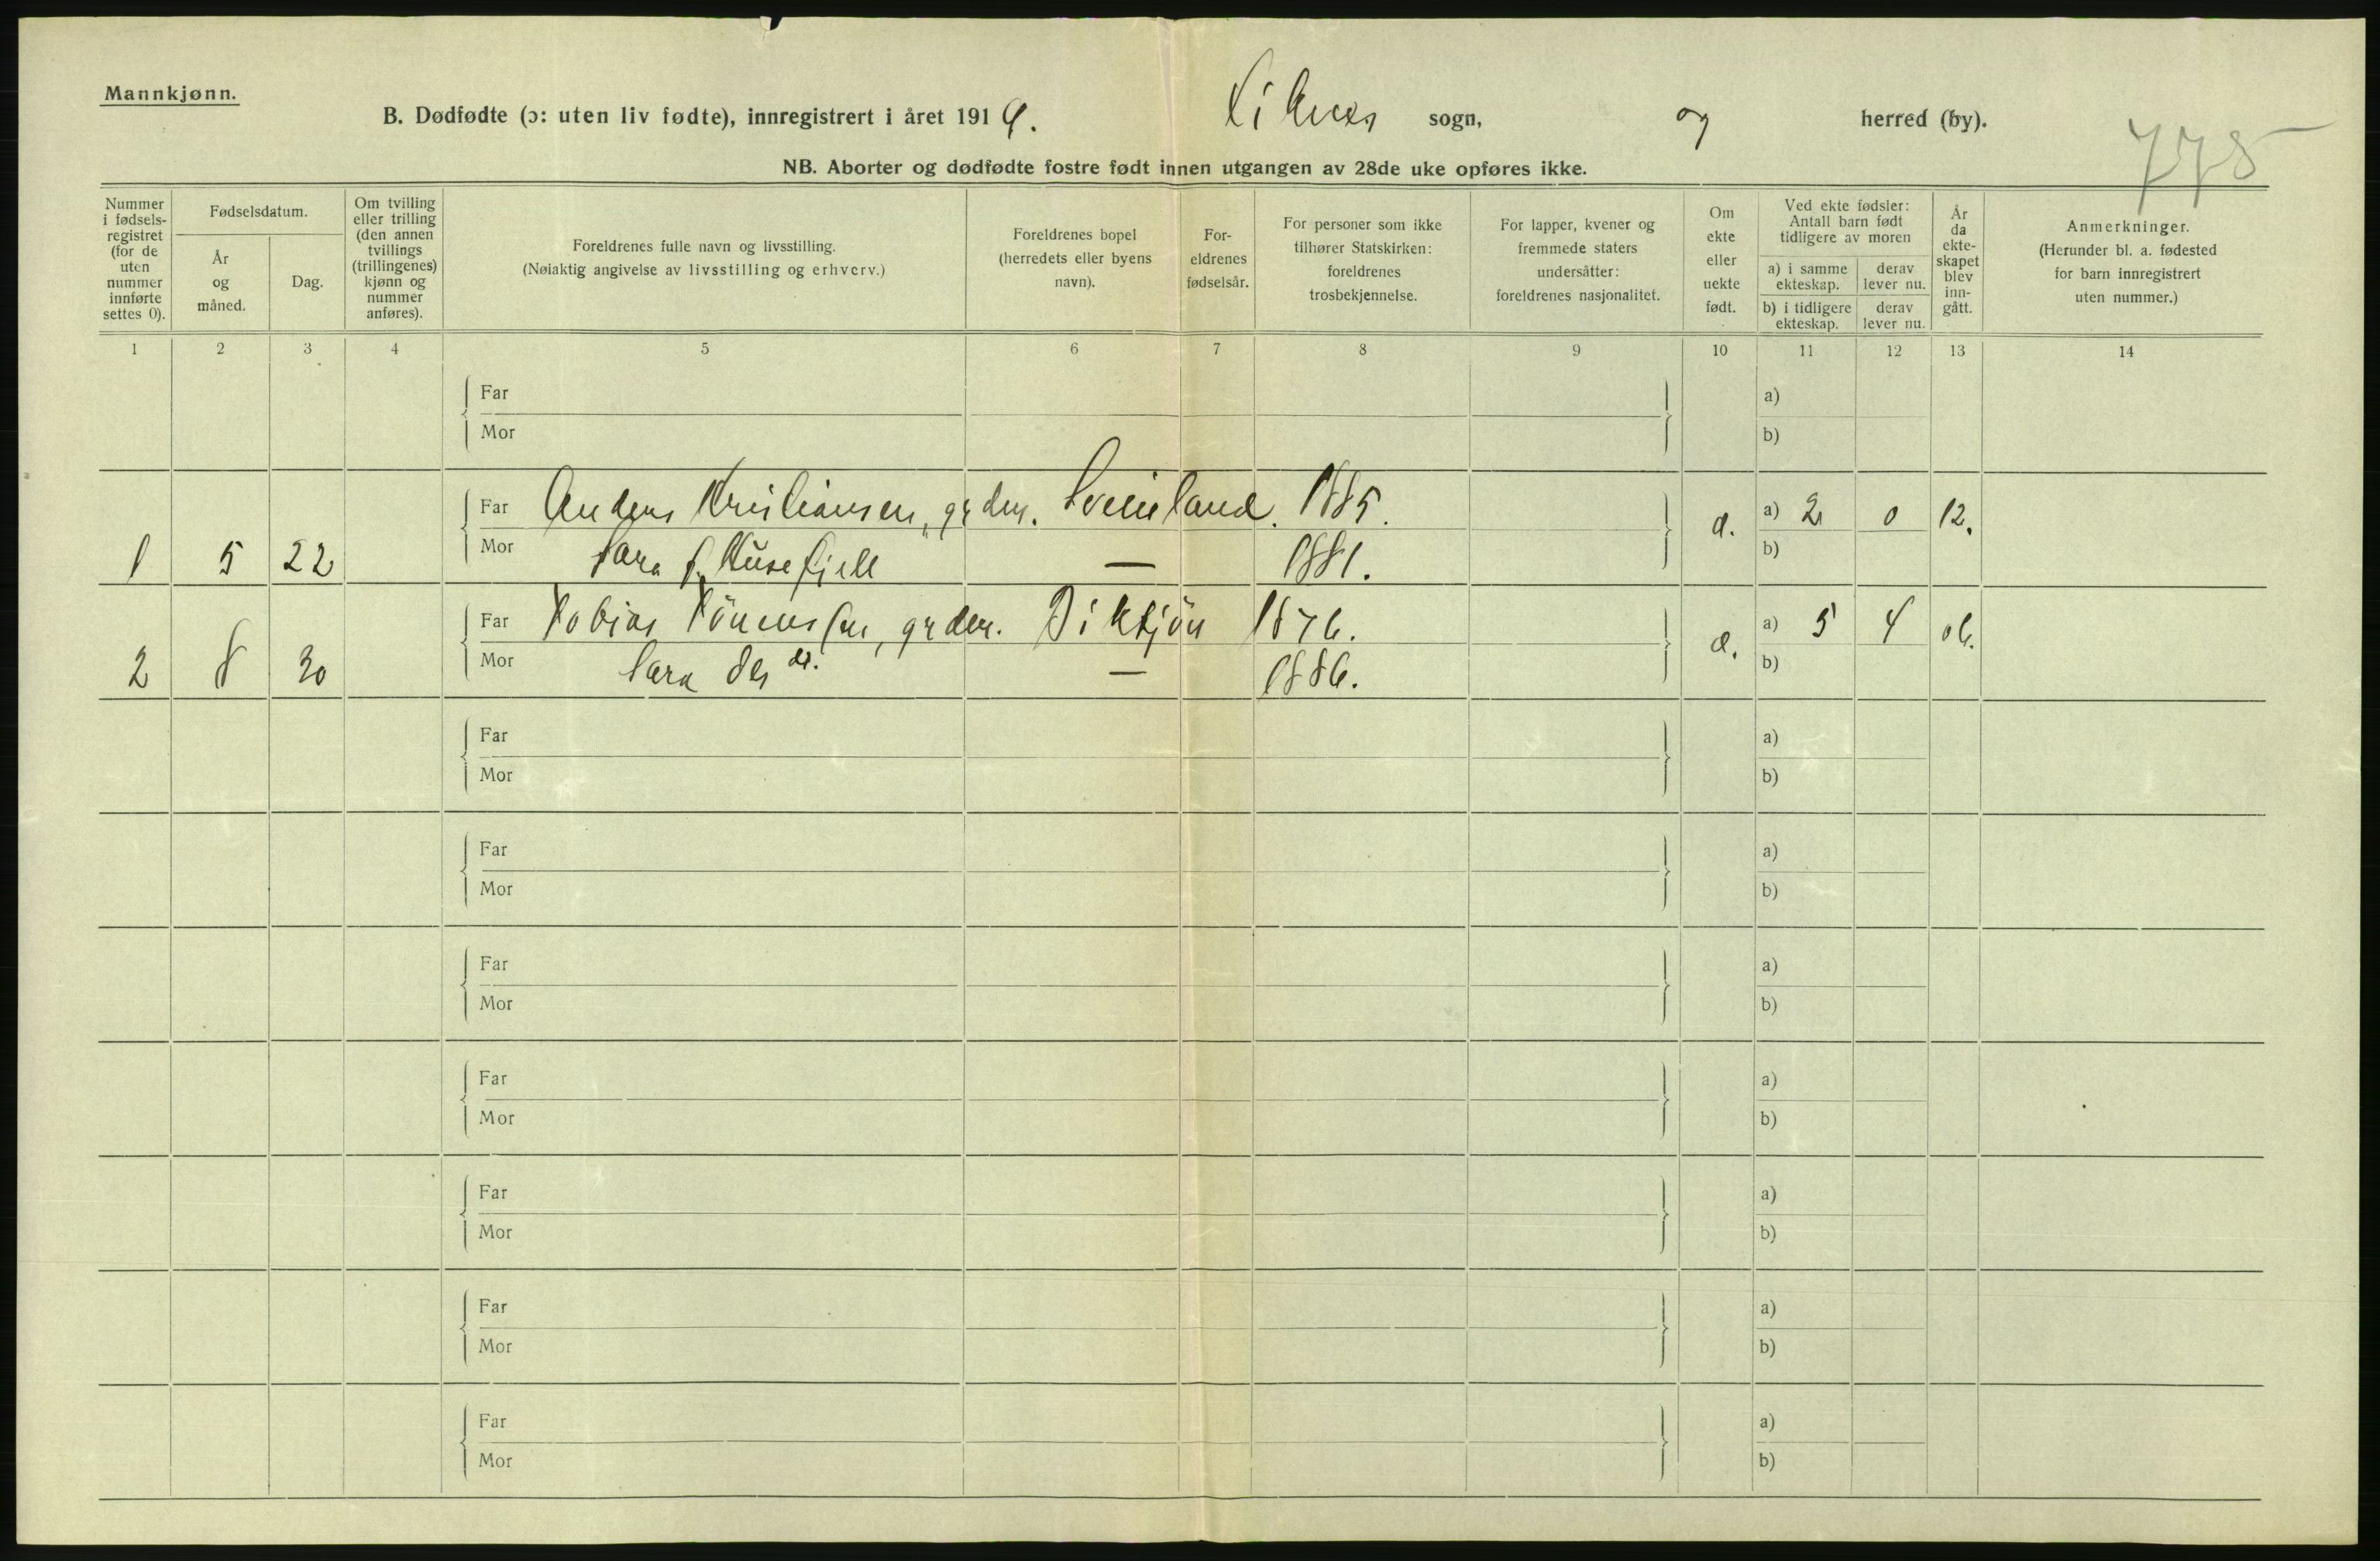 Mannkjønn.
B. Dødfødte (ɔ: uten liv fødte), innregistrert i året 1919. sogn, og herred (by).
775
NB. Aborter og dødfødte fostre født innen utgangen av 28de uke opføres ikke.
Nummer i fødsels-registret (for de uten nummer innførte settes 0).
Fødselsdatum.
År og måned.
Dag.
Om tvilling eller trilling (den annen tvillings (trillingenes) kjønn og nummer anføres).
Foreldrenes fulle navn og livsstilling.
(Nøiaktig angivelse av livsstilling og erhverv.)
Foreldrenes bopel (herredets eller byens navn).
For-eldrenes fødselsår.
For personer som ikke tilhører Statskirken: foreldrenes trosbekjennelse.
For lapper, kvener og fremmede staters undersåtter: foreldrenes nasjonalitet.
Om ekte eller uekte født.
Ved ekte fødsler: Antall barn født tidligere av moren
a) i samme ekteskap.
derav lever nu.
b) i tidligere ekteskap.
derav lever nu.
År da ekte-skapet blev inn-gått.
Anmerkninger.
(Herunder bl. a. fødested for barn innregistrert uten nummer.)
1 2 3 4 5 6 7 8 9 10 11 12 13 14
Far a)
Mor b)
Far Anders Kristiansen, grdm. Sveinland. 1885. a) 2 0 12.
1 5 22 Mor Sara f. Husefjell — 1881. b)
Far Tobias Tönnensen, grdm. 1876. a) 5 4 06.
2 8 30 Mor Sara — 1886. b)
Far a)
Mor b)
Far a)
Mor b)
Far a)
Mor b)
Far a)
Mor b)
Far a)
Mor b)
Far a)
Mor b)
Far a)
Mor b)